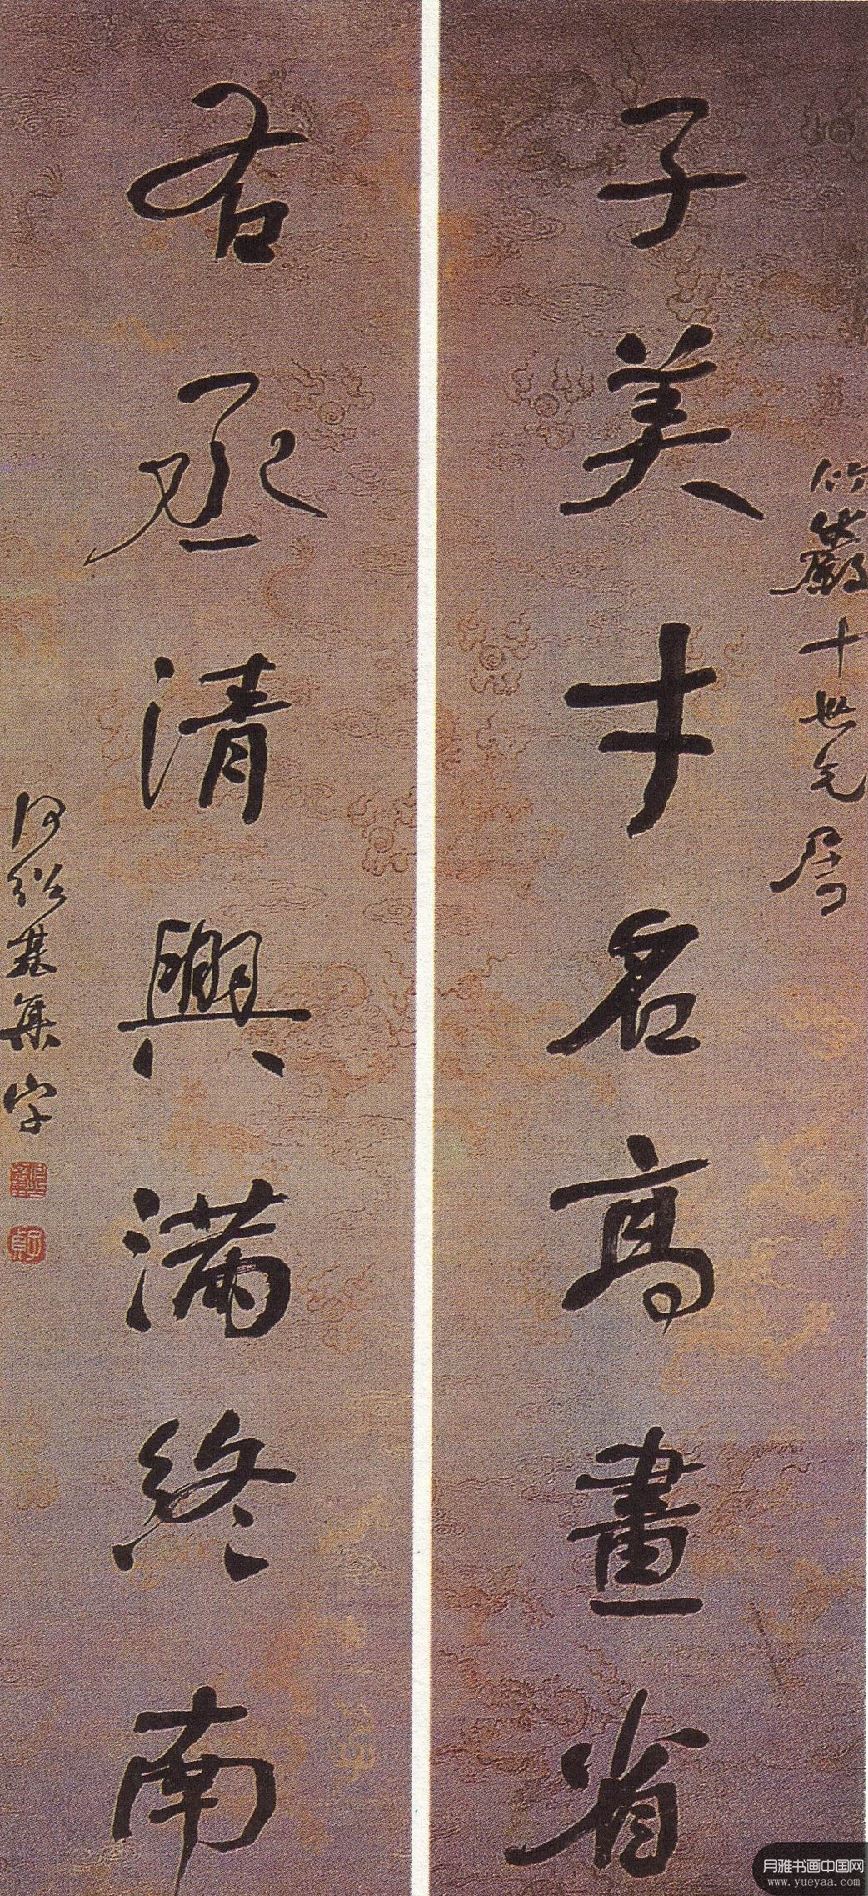 十世兄屬
子美才名高畫省
右丞清興滿終南
何紹基集字
月雅书画中国网
www.yueyaa.com